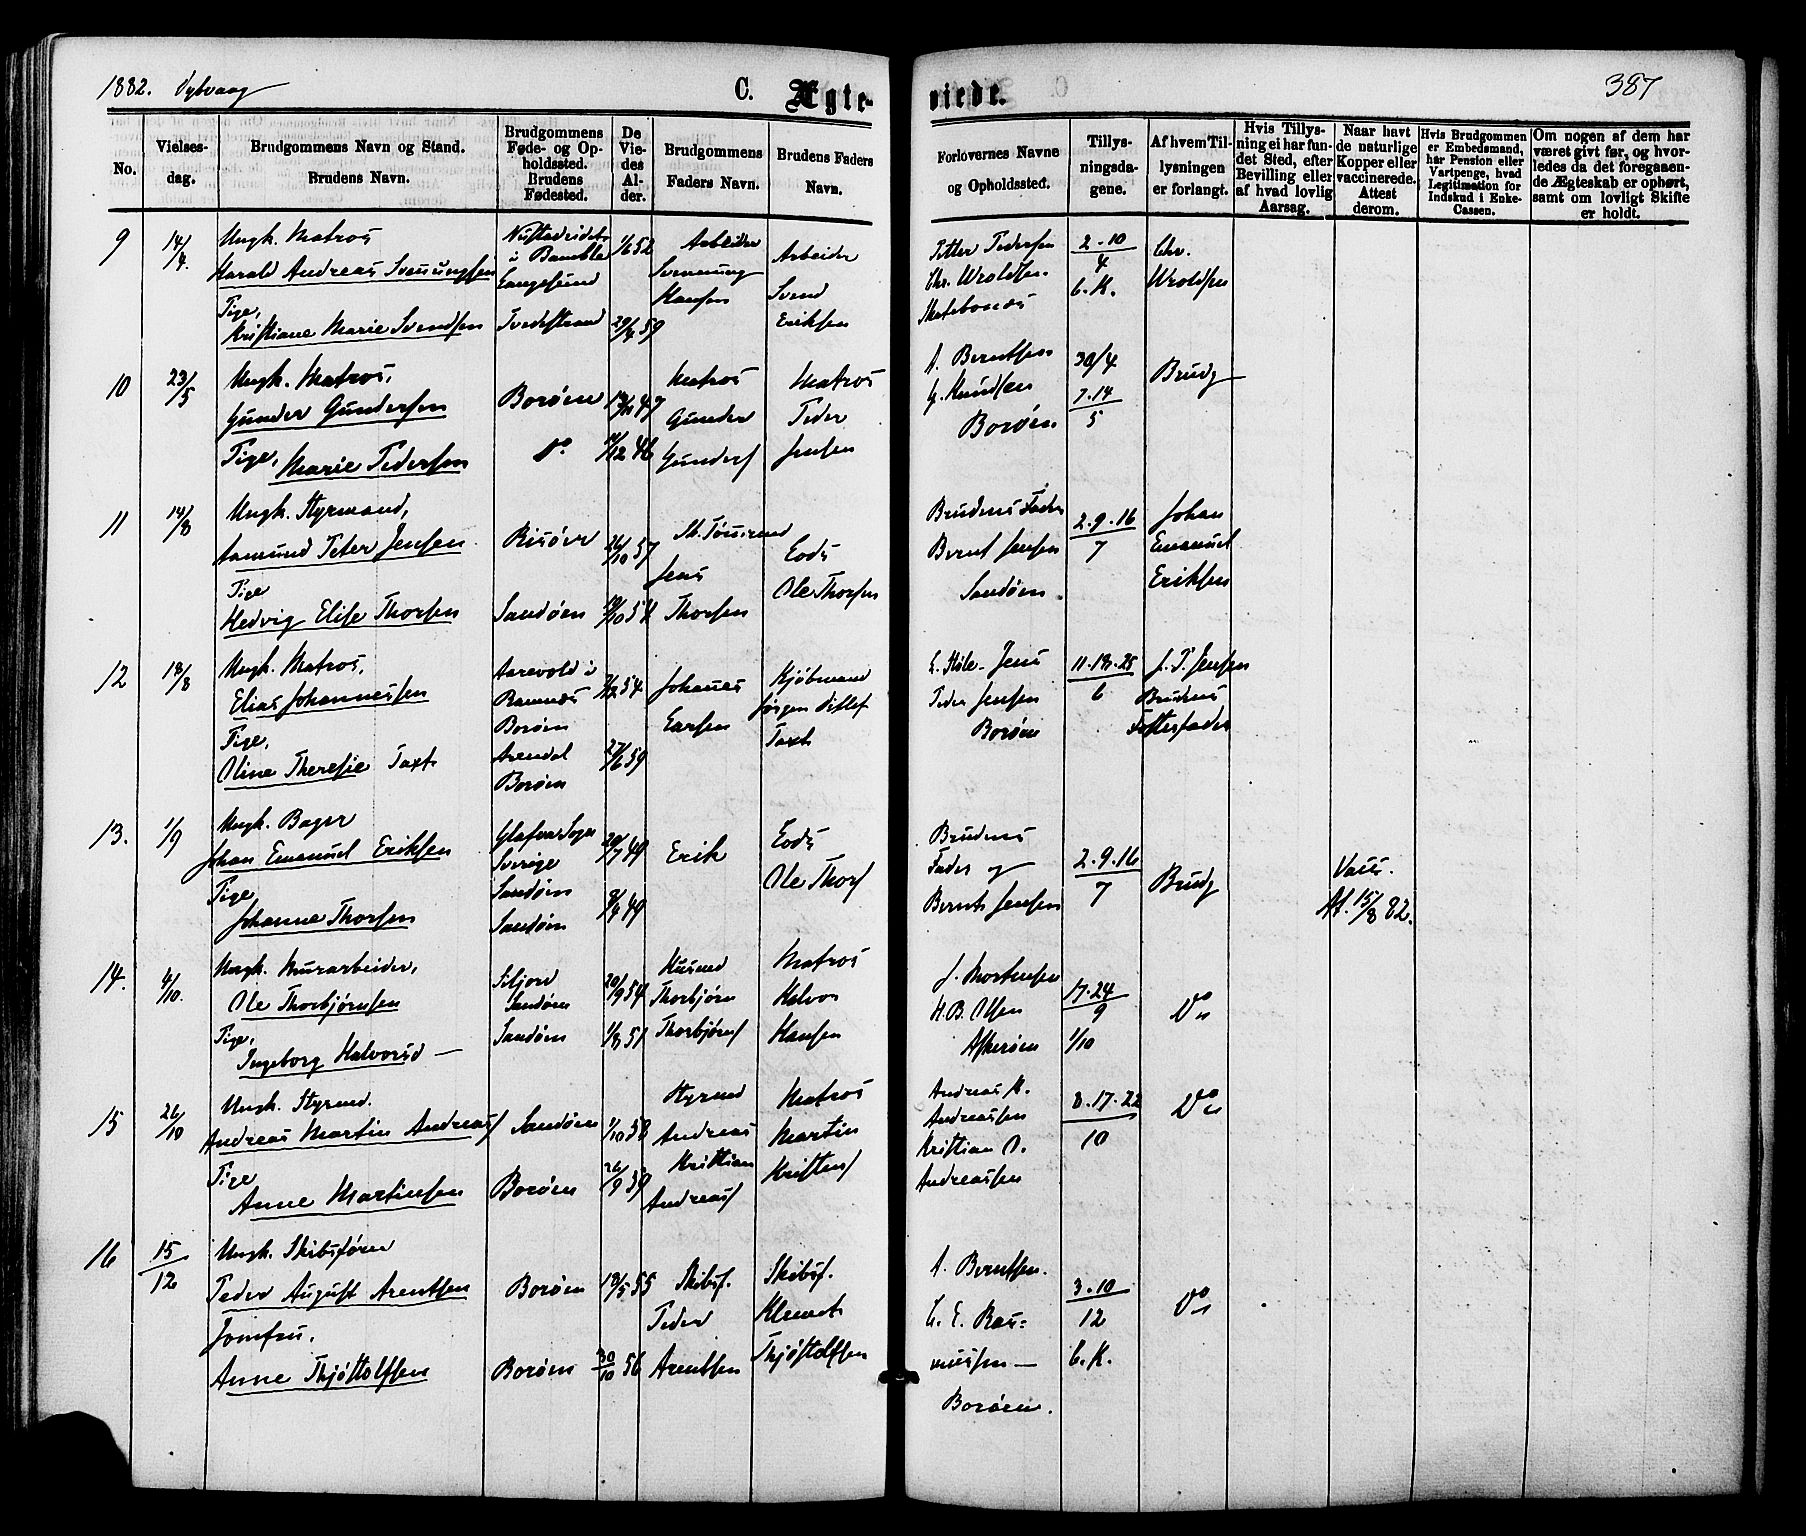 1882. Dybvaag
C. Ægteviede.
387
No.
Vielsesdag.
Brudgommens Navn og Stand.
Brudens Navn.
Brudgommens Føde- og Opholdssted.
Brudens Fødested.
De Viedes Alder.
Brudgommens Faders Navn.
Brudens Faders Navn.
Forlovernes Navne og Opholdssted.
Tillysningsdagene.
Af hvem Tillysningen er forlangt.
Hvis Tillysning ei har fundet Sted, efter Bevilling eller af hvad lovlig Aarsag.
Naar havt de naturlige Kopper eller vaccinerede. Attest derom.
Hvis Brudgommen er Embedsmand, har Pension eller Vartpenge, hvad Legitimation for Indskud i Enke-Cassen.
Om nogen af dem har været givt før, og hvorledes da det foregaaende Ægteskab er ophørt, samt om lovligt Skifte er holdt.
9 14/4 Ungk. Matros
Harald Andreas Svenungsen
i Bamble
Langesund
1/6 52
Arbeider
Svenung
Hansen
Arbeider
Svend
Eriksen
Petter Pedersen
Chr. Wroldsen
2-10/4
C. K.
Chr.
Wroldsen
Pige,
Kristiane Marie Svendsen
Tvedestrand
29/4 59
10 23/5 Ungk. Matros,
Gunder Gundersen
Borøen
47
Matros
Gunder
Gunders
Matros
Peder
Jensen
A. Berntsen
G. Knudsen
Borøen
30/4
7.14/5
Brudg
Pige, Marie Pedersen
do
/12 46
11 14/8 Ungk. Styrmand,
Aamund Peter Jensen
Risøer
26/10 57
Jens
Thorsen
Lods
Ole Thorsen
Brudens Fader
Bernt Jensen
Sandøen
2.9.16/7
Johan
Emanuel
Eriksen
Pige
Hedvig Elise Thorsen
Sandøen
19/10 54
12 18/8 Ungk. Matros,
Elias Johannessen
Aarevold i
Ramnæs
Borøen
/12 54
Johanes
Larsen
Kjøbmand
Jørgen Ditlef
Taxt
Jens
Peder Jensen
Borøen
11.18.25/6
J. P. Jensen
Brudens
Fosterfader
Pige,
Oline Theresie Taxt
Arendal
Borøen
27/6 59
13. 1/9 Ungk. Bager
Johan Emanuel Eriksen
Glafva Sogn
Sverige
Sandøen
20/7 49
Erik
Lods
Ole Thors
Brudens
Fader og
Bernt Jensen
2.9.16/7
Brudg
Vacc.
At. 15/8 82.
Pige
Johanne Thorsen
Sandøen
49
14. 4/10 Ungk. Murarbeider,
Ole Thorbjørnsen
Siljord
Sandøen
20/9 54
Husmd
Thorbjørn
Thorbjørns
Matros
Halvor
Hansen
J. Mortensen
H. B. Olsen
Askerøen
17.24/9
1/10
Do
Pige,
Ingeborg Halvorsd
Sandøen
1/8 51
15 26/10 Ungk. Styrmd.
Andreas Martin Andreas
Sandøen
1/10 58
Styrmd
Andreas
Kristian
Andreas
Matros
Martin
Kristens
Andreas M.
Andreassen
Kristian A.
Andreassen
8.17.22/10
Do
Pige
Anne Martinsen
Borøen
26/9 59
16 15/12 Ungk. Skibsfører
Peder August Arentsen
Borøen
18/5 55
Skibsf.
Peder
Arentsen
Skibsf.
Klemet
Thjøstolfsen
A. Berntsen.
C. E. Rasmussen
Borøen.
3.10/12
C. K.
Do
Jomfru.
Anne Thjøstolfsen
Borøen
30/10 56